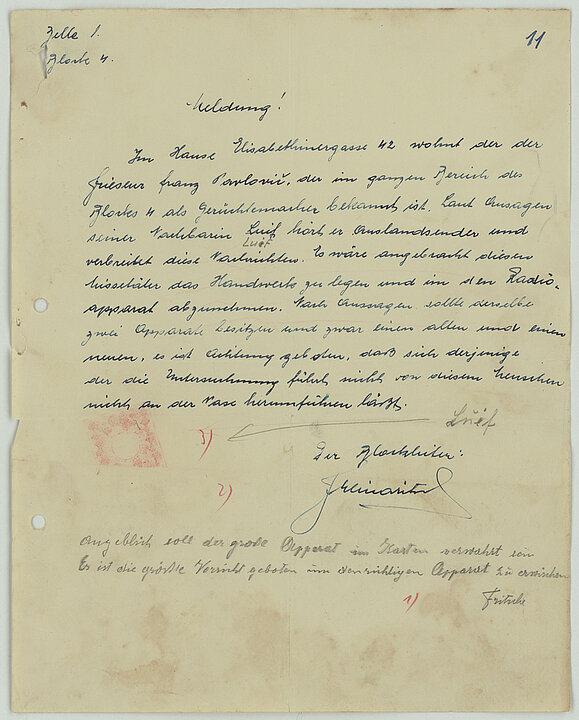 Zelle 1.
11
Block 4.
Meldung!
Im Hause Elisabethinergasse 42 wohnt der der
Frieseur Franz Pavlovič, der im ganzen Bereich des
Blockes 4 als Gerüchtemacher bekannt ist. Laut Aussagen
seiner Nachbarin hört er Auslandsender und
verbreitet diese Nachrichten. Es wäre angebracht diesen
Missetäter das Handwerk zu legen und im den Radio-
apparat abzunehmen. Nach Aussagen sollte derselbe
zwei Apparate besitzen und zwar einen alten und einen
neuen, es ist Achtung geboten, daß sich derjenige
der die Untersuchung führt nicht von diesem Menschen
nicht an der Nase herumführen läßt.
3)
Der Blockleiter:
2)
Angeblich soll der große Apparat im Garten verwahrt sein
Es ist die größte Vorsicht geboten um den richtigen Apparat zu erwischen
1)
Fritsche